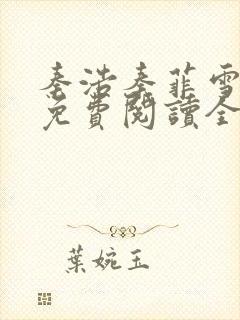 秦浩秦菲雪
免費閱讀全
葉婉玉